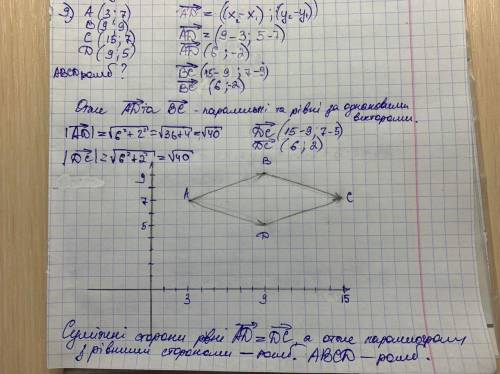 9) A (3; 7)
B (9; 9)
C (15; 7)
D (9; 5)
ABCD ромб ?
AB = (x₂ - x₁) ; (y₂ - y₁)
AD = (9 - 3 ; 5 - 7)
AD (6 ; -2)
BC (15 - 9 ; 7 - 9)
BC (6 ; -2)
Отже AD та BC - паралельні та рівні за однаковими
векторами.
|AD| = √6² + 2² = √36+4 = √40
DC (15 - 9, 7 - 5)
|DC| = √6² + 2² = √40
DC (6 ; 2)
B
9
A
7
C
5
D
3
9
15
Суміжні сторони рівні AD = DC, а отже паралелограм
з рівними сторонами - ромб. ABCD - ромб.